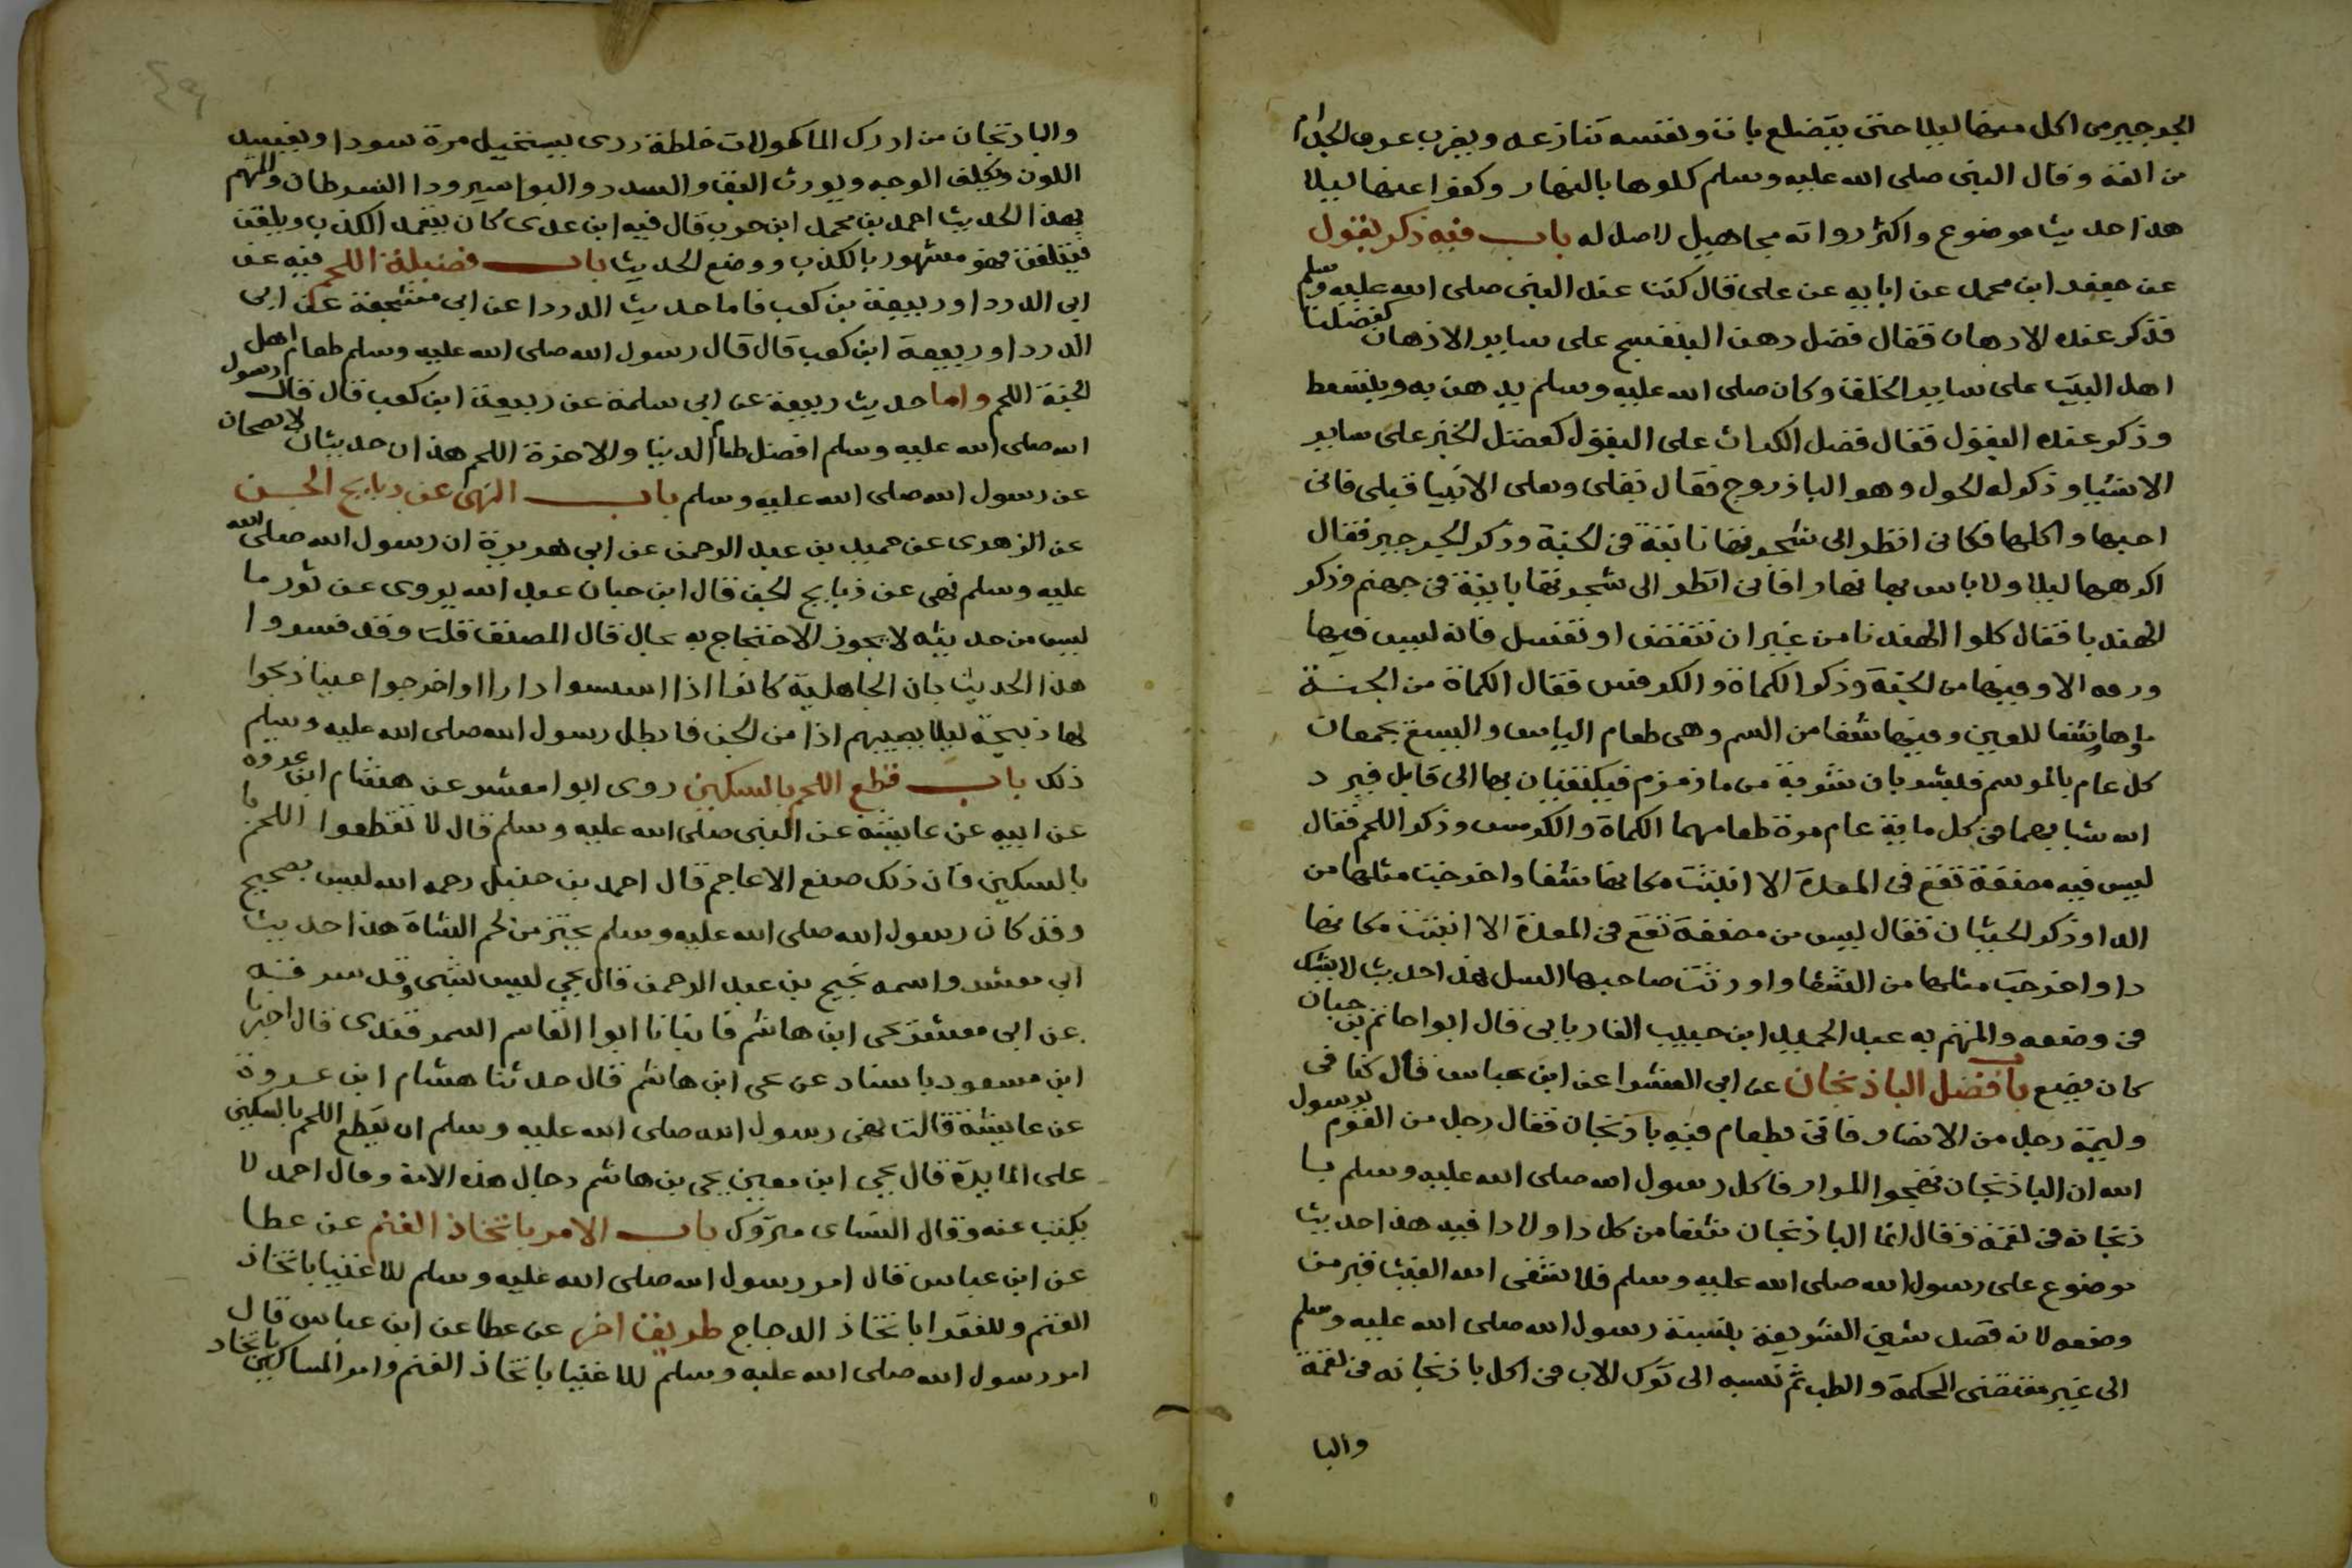 الجرجير من اكل منها ليلا حتى يتضلع بات ونفسه تنازعه ويضرب عرق الجذام
من انفه وقال النبى صلى الله عليه وسلم كلوها بالنهار وكفوا عنها ليلا
هذا حديث موضوع واكثر رواته مجاهيل لا اصل له باب فيه ذكر بقول
عن جعفر ابن محمد عن ابايه عن على قال كنت عند النبى صلى الله عليه وسلم
فذكر عنده الادهان فقال فضل دهن البنفسج على ساير الادهان كفضلنا
اهل البيت على ساير الخلق وكان صلى الله عليه وسلم يدهن به ويتسعط
وذكر عنده البقول فقال فضل الكراث على البقول كفضل الخبز على ساير
الاشيا وذكر له الحوك وهو الباذروج فقال بقلى وبقل الانبيا قبلى فانى
احبها واكلها فكانى انظر الى شجرتها نابتة فى الجنة وذكر الجرجير فقال
اكرهها ليلا ولا باس بها نهارا فانى انظر الى شجرتها نابتة فى جهنم وذكر
الهندبا فقال كلوا الهندبا من غير ان تنفض او تغسل فانه ليس فيها
ورقه الا وفيها من الجنة وذكر الكماة والكرفس فقال الكماة من الجنة
ماوها شفا للعين وفيها شفا من السم وهى طعام الياس واليسع يجتمعان
كل عام بالموسم فيشربان شربة من ما زمزم فيكتفيان بها الى قابل فيرد
الله شبابهما فى كل ماية عام مرة طعامهما الكماة والكرفس وذكر اللحم فقال
ليس فيه مضغة تقع فى المعدة الا انبتت مكانها شفا واخرجت مثلها من
الدا وذكر الحيتان فقال ليس من مضغة تقع فى المعدة الا انبتت مكانها
دا واخرجت مثلها من الشفا واورثت صاحبها السل هذا حديث لا يشك
فى وضعه والمتهم به عبد الحميد ابن حبيب الفاريابى قال ابو حاتم بن حبان
كان يضع باب فضل الباذنجان عن ابى العشرا عن ابن عباس قال كنا فى
وليمة رجل من الانصار فاتى بطعام فيه باذنجان فقال رجل من القوم يا رسول
الله ان الباذنجان يهيج المرار فاكل رسول الله صلى الله عليه وسلم با
ذنجانة فى لقمة وقال انما الباذنجان شفا من كل دا ولا دا فيه هذا حديث
موضوع على رسول الله صلى الله عليه وسلم فلا شفى الله الغيث قبر من
وضعه لانه قصد شين الشريعة بنسبة رسول الله صلى الله عليه وسلم
الى غير مقتضى الحكمة والطب ثم نسبه الى ترك الادب فى اكل باذنجانه فى لقمة
والبا
والباذنجان من اردى الماكولات خلطة ردى يستحيل مرة سودا ويفسد
اللون ويكلف الوجه ويورث البهق والسدد والبواسير ودا السرطان والمتهم
بهذا الحديث احمد بن محمد ابن حرب قال فيه ابن عدى كان يتعمد الكذب ويلقن
فيتلقن وهو مشهور بالكذب ووضع الحديث باب فضيلة اللحم فيه عن
ابى الدردا وربيعة بن كعب فاما حديث الدردا عن ابى مشجعة عن ابى
الدردا وربيعة ابن كعب قال قال رسول الله صلى الله عليه وسلم طعام اهل
الجنة اللحم واما حديث ربيعة عن ابى سلمة عن ربيعة ابن كعب قال قال رسول
الله صلى الله عليه وسلم افضل طعام الدنيا والاخرة اللحم هذان حديثان لا يصحان
عن رسول الله صلى الله عليه وسلم باب النهى عن ذبايح الجن
عن الزهرى عن حميد بن عبد الرحمن عن ابى هريرة ان رسول الله صلى الله
عليه وسلم نهى عن ذبايح الجن قال ابن حبان عبد الله يروى عن ثور ما
ليس من حديثه لا يجوز الاحتجاج به بحال قال المصنف قلت وقد فسروا
هذا الحديث بان الجاهلية كانوا اذا اسسوا دارا او اخرجوا عينا ذبحوا
لها ذبيحة ليلا يصيبهم اذا من الجن فابطل رسول الله صلى الله عليه وسلم
ذلك باب قطع اللحم بالسكين روى ابوا معشر عن هشام ابن عروه
عن ابيه عن عايشه عن النبى صلى الله عليه وسلم قال لا تقطعوا اللحم
بالسكين فان ذلك صنع الاعاجم قال احمد بن حنبل رحمه الله ليس بصحيح
وقد كان رسول الله صلى الله عليه وسلم يحتز من لحم الشاة هذا حديث
ابى معشر واسمه نجيح بن عبد الرحمن قال يحيى ليس بشى وقد سرقه
عن ابى معشر يحى ابن هاشم فانبانا ابوا القاسم السمرقندى قال اخبرنا
ابن مسعود باسناد عن يحى ابن هاشم قال حدثنا هشام ابن عروة
عن عايشة قالت نهى رسول الله صلى الله عليه وسلم ان يقطع اللحم بالسكين
على المايدة قال يحيى ابن معين يحى بن هاشم دجال هذه الامة وقال احمد لا
يكتب عنه وقال النساى متروك باب الامر باتخاذ الغنم عن عطا
عن ابن عباس قال امر رسول الله صلى الله عليه وسلم للاغنيا باتخاذ
الغنم وللفقرا باتخاذ الدجاج طريق اخر عن عطا عن ابن عباس قال
امر رسول الله صلى الله عليه وسلم للاغنيا باتخاذ الغنم وامر المساكين باتخاذ